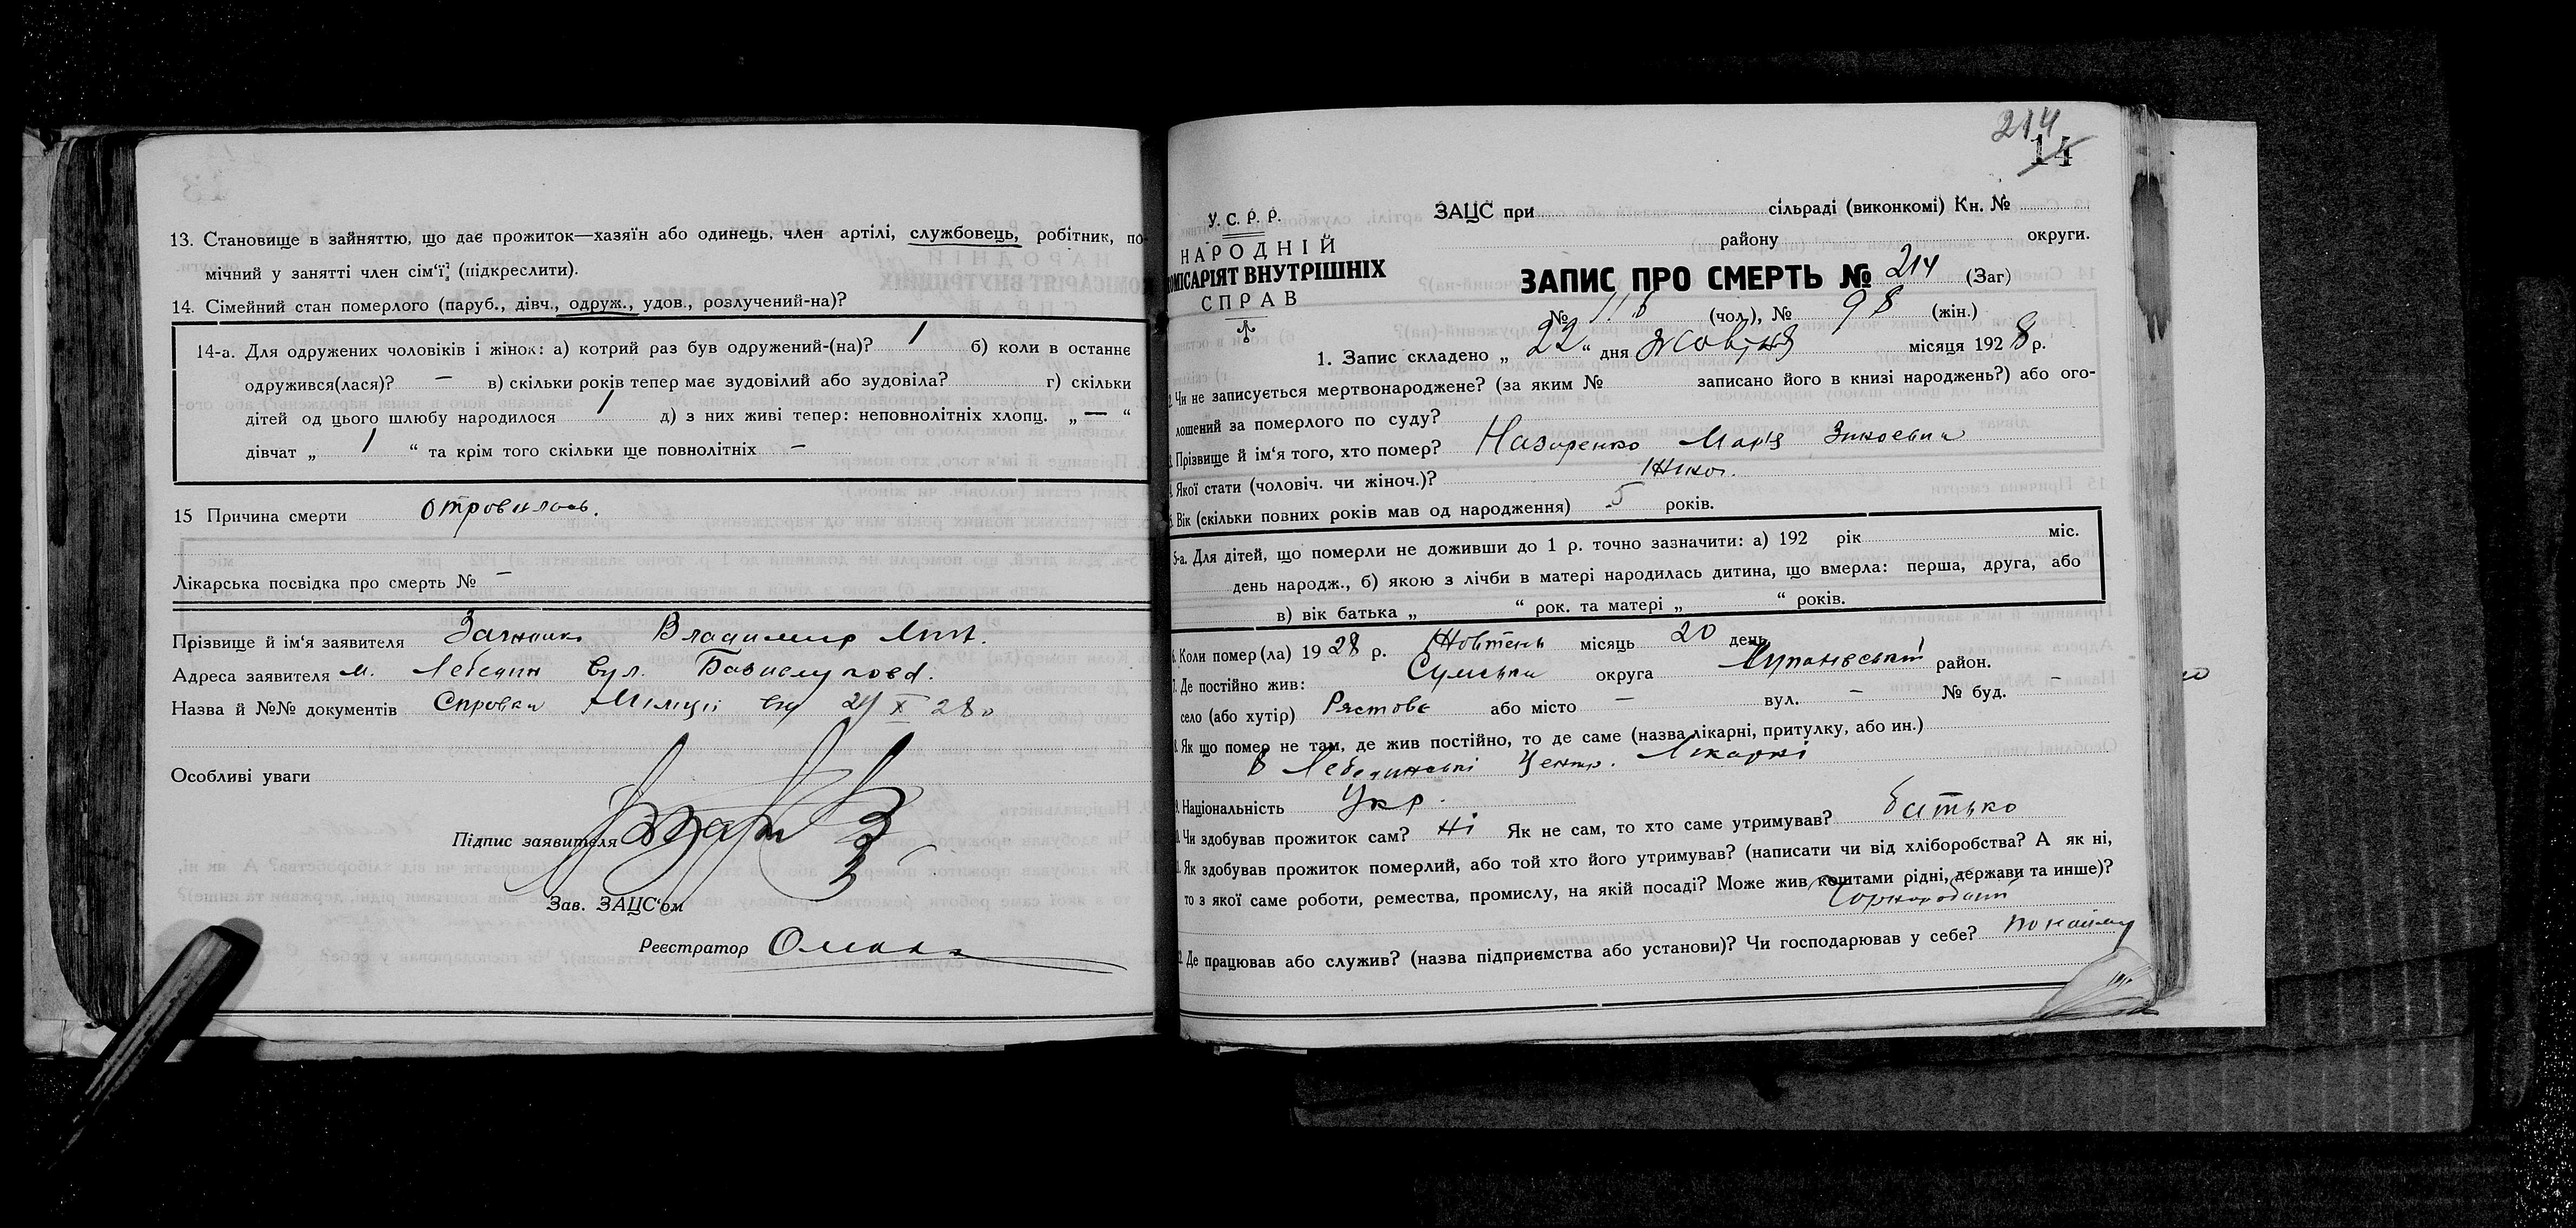 13. Становище в зайняттю, що дає прожиток—хазяїн або одинець, член артілі, службовець, робітник, по-
мічний у занятті член сім'ї, (підкреслити).
14. Сімейний стан померлого (паруб., дівч., одруж., удов., розлучений-на)?
14-а. Для одружених чоловіків і жінок: а) котрий раз був одружений-(на)? 1 б) коли в останнє
одружився(лася)? — в) скільки років тепер має зудовілий або зудовіла? г) скільки
дітей од цього шлюбу народилося 1 д) з них живі тепер: неповнолітніх хлопц. „ — “
дівчат „ 1 “ та крім того скільки ще повнолітніх —
15 Причина смерти отровилась.
Лікарська посвідка про смерть № —
Прізвище й ім'я заявителя Владимир
Адреса заявителя м. Лебедин вул.
Назва й №№ документів Справка Міліції від 24 X 28
Особливі уваги
Підпис заявителя
Зав. ЗАЦС'ом
Реєстратор
214
14
У. С. Р. Р.
НАРОДНІЙ
КОМІСАРІЯТ ВНУТРІШНІХ
СПРАВ
ЗАЦС при сільраді (виконкомі) Кн. №
району округи.
ЗАПИС ПРО СМЕРТЬ № 214 (Заг)
№ 116 (чол.), № 98 (жін.)
1. Запис складено „ 22 “ дня Жовтня місяця 1928 р.
2. Чи не записується мертвонароджене? (за яким № записано його в книзі народжень?) або ого-
лошений за померлого по суду?
3. Прізвище й ім'я того, хто помер? Назаренко Марія
4. Якої стати (чоловіч. чи жіноч.)? Жіноч.
5. Вік (скільки повних років мав од народження) 5 років.
5-а. Для дітей, що померли не доживши до 1 р. точно зазначити: а) 192 рік міс.
день народж., б) якою з лічби в матері народилась дитина, що вмерла: перша, друга, або
в) вік батька „ “ рок. та матері „ “ років.
6. Коли помер(ла) 1928 р. Жовтень місяць 20 день
7. Де постійно жив: Сумська округа район.
село (або хутір) Рястове або місто — вул. — № буд. —
8. Як що помер не там, де жив постійно, то де саме (назва лікарні, притулку, або ин.)
в Лебединські Центр. Лікарні
9. Національність Укр.
10. Чи здобував прожиток сам? Ні Як не сам, то хто саме утримував? батько
11. Як здобував прожиток померлий, або той хто його утримував? (написати чи від хліборобства? А як ні,
то з якої саме роботи, ремества, промислу, на якій посаді? Може жив коштами рідні, держави та инше)?
Чорнороб
12. Де працював або служив? (назва підприємства або установи)? Чи господарював у себе? по найму